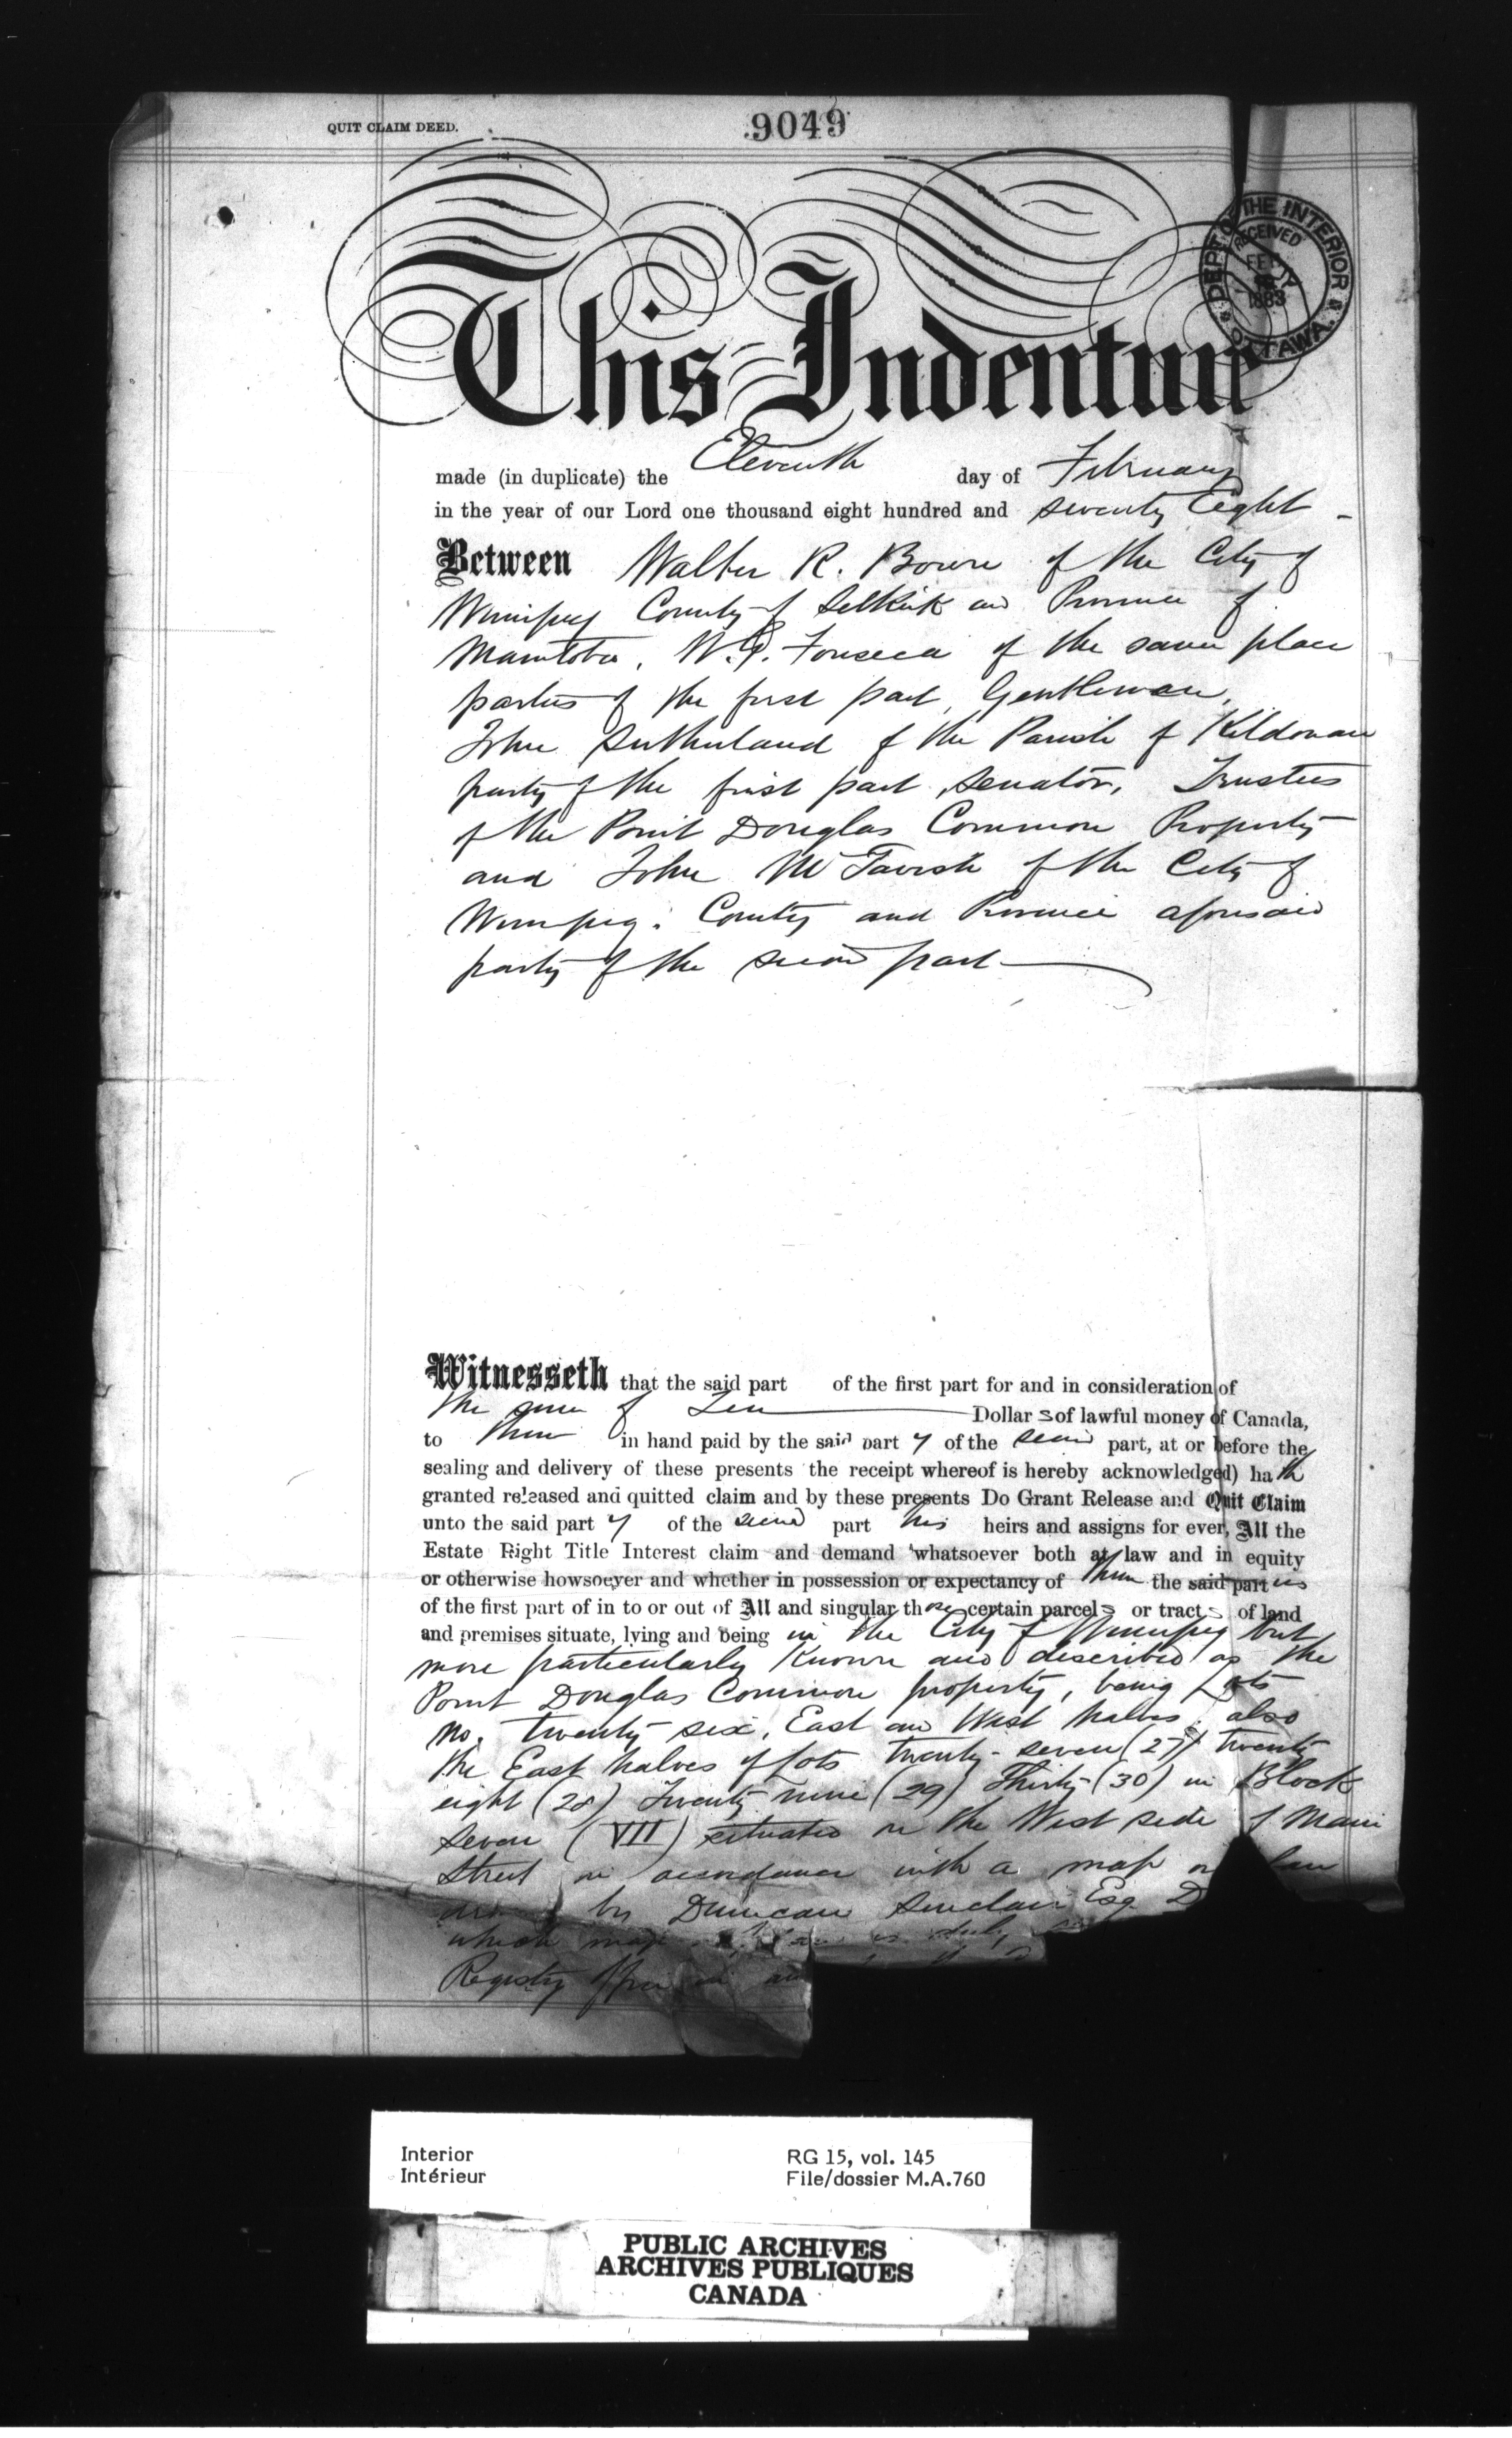 QUIT CLAIM DEED.
9049
DEPT OF THE INTERIOR
RECEIVED
FEB
1883
OTTAWA.
This Indenture
made (in duplicate) the Eleventh day of February
in the year of our Lord one thousand eight hundred and seventy Eight
Between Walter R. Bown of the City of
Winnipeg County of Selkirk and Province of
Manitoba, W. G. Fonseca of the same place
parties of the first part, Gentlemen,
John Sutherland of the Parish of Kildonan
party of the first part, Senator, Trustees
of the Point Douglas Common Property
and John McTavish of the City of
Winnipeg. County and Province aforesaid
party of the second part
Witnesseth that the said part of the first part for and in consideration of
the sum of Ten Dollars of lawful money of Canada,
to them in hand paid by the said party of the second part, at or before the
sealing and delivery of these presents the receipt whereof is hereby acknowledged) hath
granted released and quitted claim and by these presents Do Grant Release and Quit Claim
unto the said party of the second part his heirs and assigns for ever, All the
Estate Right Title Interest claim and demand whatsoever both at law and in equity
or otherwise howsoever and whether in possession or expectancy of them the said parties
of the first part of in to or out of All and singular those certain parcels or tracts of land
and premises situate, lying and being in the City of Winnipeg but
more particularly known and described as the
Point Douglas Common property, being Lots
no. twenty six, East and West halves, also
the East halves of lots twenty-seven (27) twenty
eight (28) Twenty nine (29) Thirty (30) in Block
Seven (VII) situated on the West side of Main
Street in accordance with a map or plan
by Duncan Sinclair Esq. D
which map is duly
Registry Office
Interior
Intérieur
RG 15, vol. 145
File/dossier M.A.760
PUBLIC ARCHIVES
ARCHIVES PUBLIQUES
CANADA